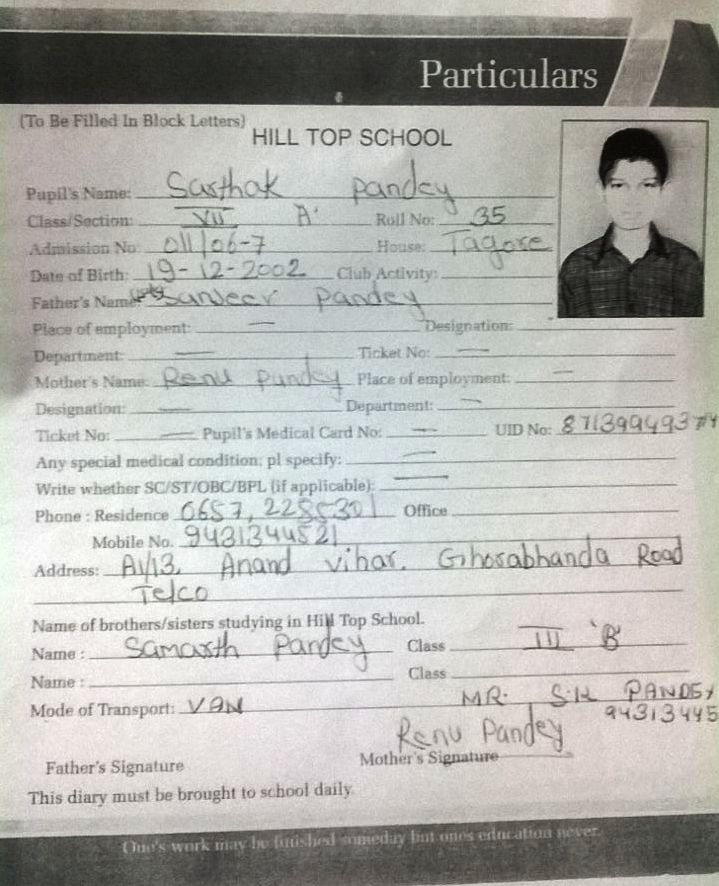 Particulars
(To Be Filled In Block Letters)
HILL TOP SCHOOL
Pupil's Name: Sarthak Pandey
Class/Section: VII 'A' Roll No: 35
Admission No: 011/06-7 House: Tagore
Date of Birth: 19-12-2002 Club Activity:
Father's Name: Sanjeev Pandey
Place of employment: — Designation:
Department: — Ticket No: —
Mother's Name: Renu Pandey Place of employment: —
Designation: — Department: —
Ticket No: — Pupil's Medical Card No: — UID No: 8713994937
Any special medical condition, pl specify: —
Write whether SC/ST/OBC/BPL (if applicable): —
Phone : Residence 0657, 2285301 Office
Mobile No. 9431344521
Address: A1/13, Anand Vihar. Ghorabhanda Road
Telco
Name of brothers/sisters studying in Hill Top School.
Name : Samarth Pandey Class III 'B'
Name : Class
Mode of Transport: VAN MR. S.K PANDEY
94313445
Renu Pandey
Father's Signature Mother's Signature
This diary must be brought to school daily.
One's work may be finished someday but ones education never.